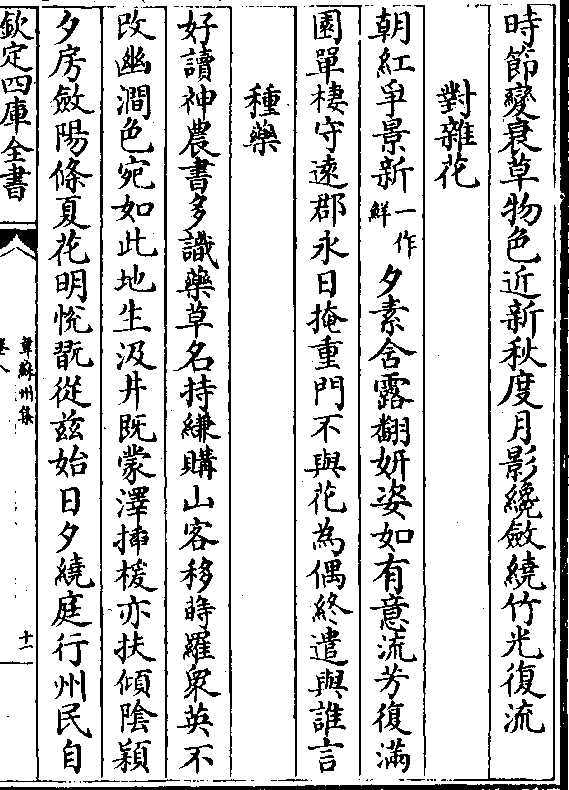 時節變衰草物色近新秋度月影纔斂繞竹光復流
對雜花
朝紅爭景新一作鮮夕素含露翻妍姿如有意流芳復滿
園單棲守遠郡永日掩重門不與花為偶終遣與誰言
種藥
好讀神農書多識藥草名持縑購山客移時羅衆英不
改幽澗色宛如此地生汲井既蒙澤插楥亦扶傾陰穎
夕房斂陽條夏花明悅翫從茲始日夕繞庭行州民自
欽定四庫全書
韋蘇州集
卷八
十一